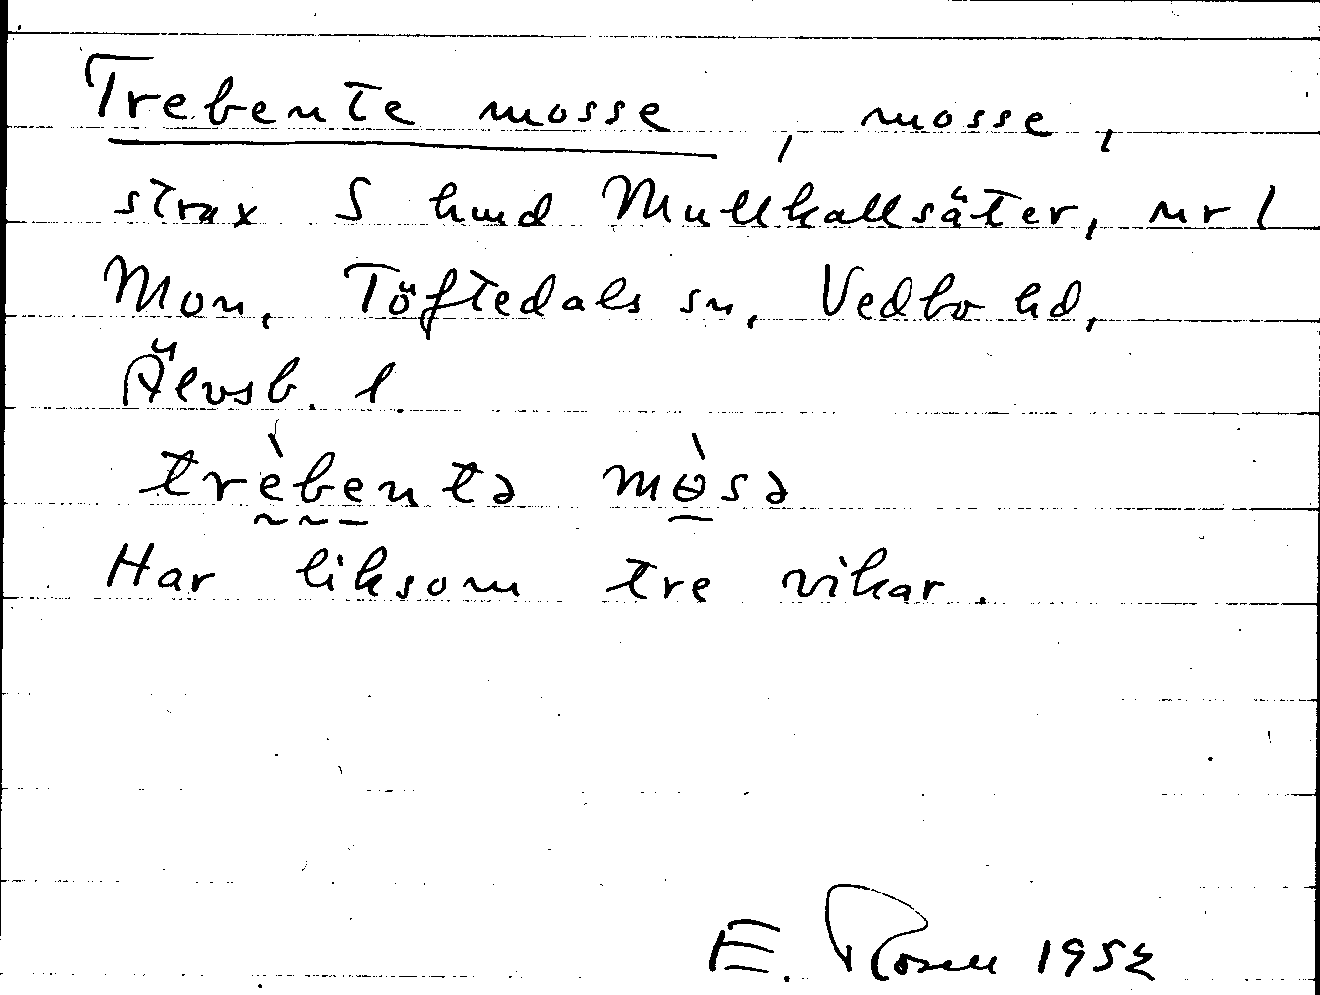 Trebente mosse, mosse,
strax S hmd Mullkallsäter, nr 1
Mon, Töftedals sn, Vedbo hd,
Älvsb. l.
trèbentə mɵ̀sə
Har liksom tre vikar.
E. Rosell 1952